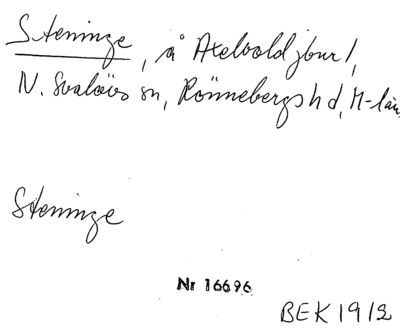 Steninge, å Axelvold jbur 1,
N. Svalövs sn, Rönnebergs hd, M-län.
Steninge
Nr 16696
BEK 1912